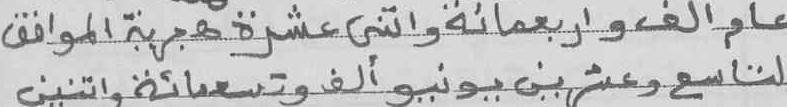 عام الف و اربعمائة واتنى عشرة هجرية الموافق
لتاسع وعشرين يونيو ألف وتسعمائة واتنين